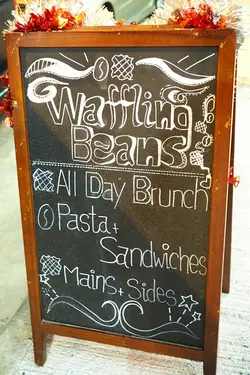 Waffling
Beans
All Day Brunch
Pasta +
Sandwiches
Mains + Sides